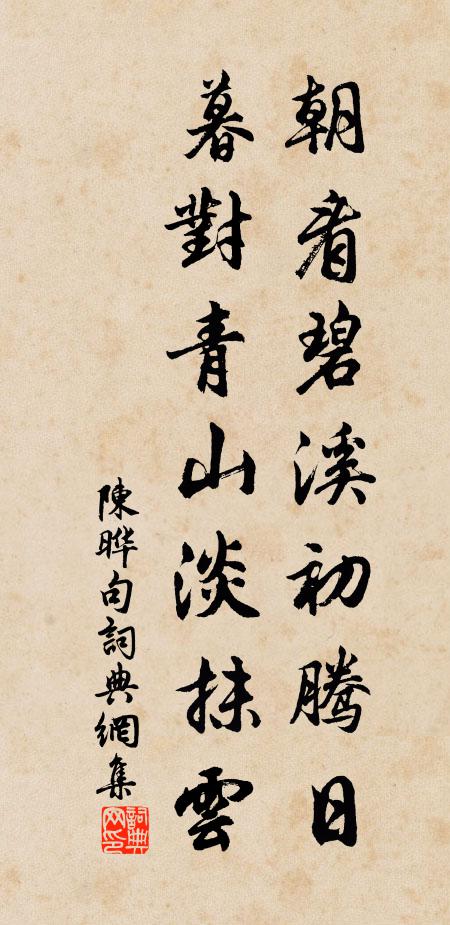 朝看碧溪初腾日
暮對青山淡抹雲
陳晔句詞典網集
詞典網印